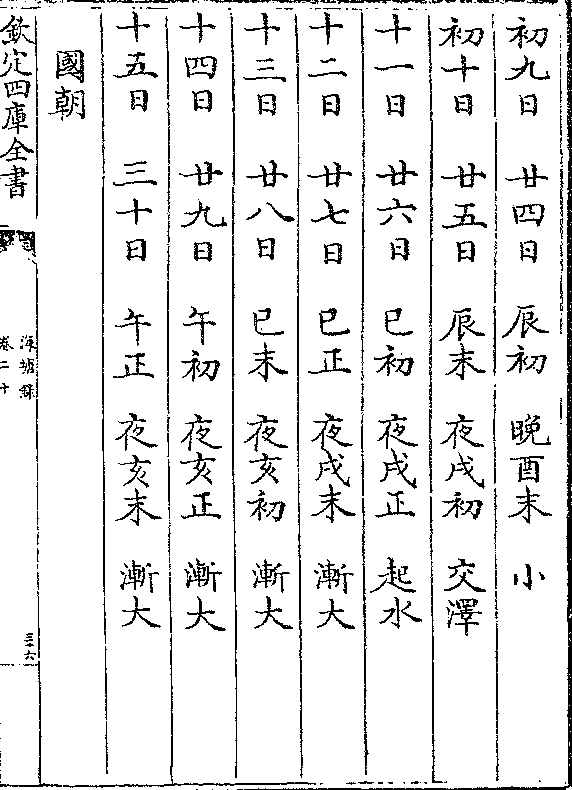 初九日　廿四日　辰初　晚酉末　小
初十日　廿五日　辰末　夜戌初　交澤
十一日　廿六日　巳初　夜戌正　起水
十二日　廿七日　巳正　夜戌末　漸大
十三日　廿八日　巳末　夜亥初　漸大
十四日　廿九日　午初　夜亥正　漸大
十五日　三十日　午正　夜亥末　漸大
國朝
欽定四庫全書
卷二十
三六